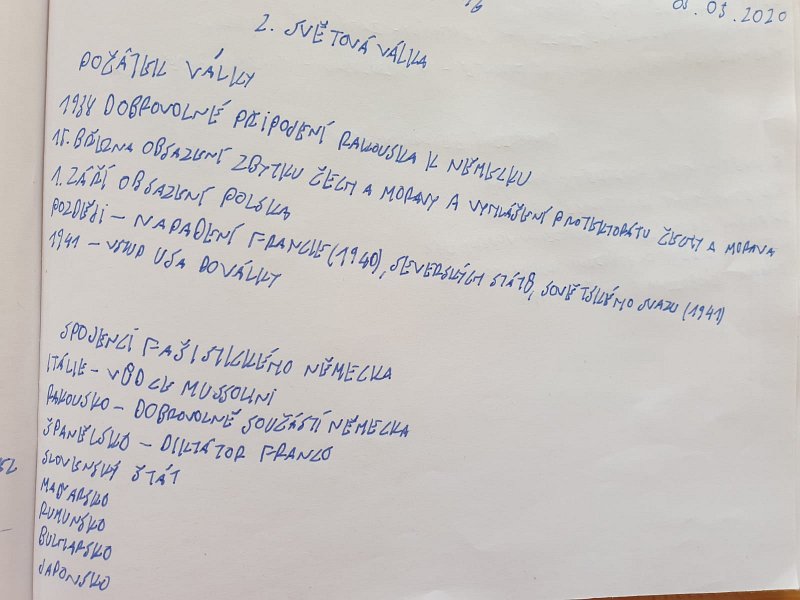 05.05.2020
2. SVĚTOVÁ VÁLKA
POČÁTEK VÁLKY
1938 DOBROVOLNÉ PŘIPOJENÍ RAKOUSKA K NĚMECKU
15. BŘEZNA OBSAZENÍ ZBYTKU ČECH A MORAVY A VYHLÁŠENÍ PROTEKTORÁTU ČECH A MORAVA
1. ZÁŘÍ OBSAZENÍ POLSKA
POZDĚJI – NAPADENÍ FRANCIE (1940), SEVERSKÝCH STÁTŮ, SOVĚTSKÉHO SVAZU (1941)
1941 – VSTUP USA DO VÁLKY
SPOJENCI FAŠISTICKÉHO NĚMECKA
ITÁLIE – VŮDCE MUSSOLINI
RAKOUSKO – DOBROVOLNĚ SOUČÁSTÍ NĚMECKA
ŠPANĚLSKO – DIKTÁTOR FRANCO
SLOVENSKÝ ŠTÁT
MAĎARSKO
RUMUNSKO
BULHARSKO
JAPONSKO